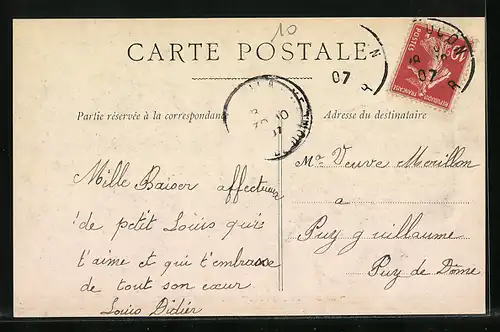 10
CARTE POSTALE
07
POSTES
10
REPUBLIQUE FRANÇAISE
07
Partie réservée à la correspondance
Adresse du destinataire
Mille Baiser affectueux
de petit Louis qui
t'aime et qui t'embrasse
de tout son cœur
Louis Didier
Mᵉ Veuve Mérillon
a
Puy guillaume
Puy de Dôme